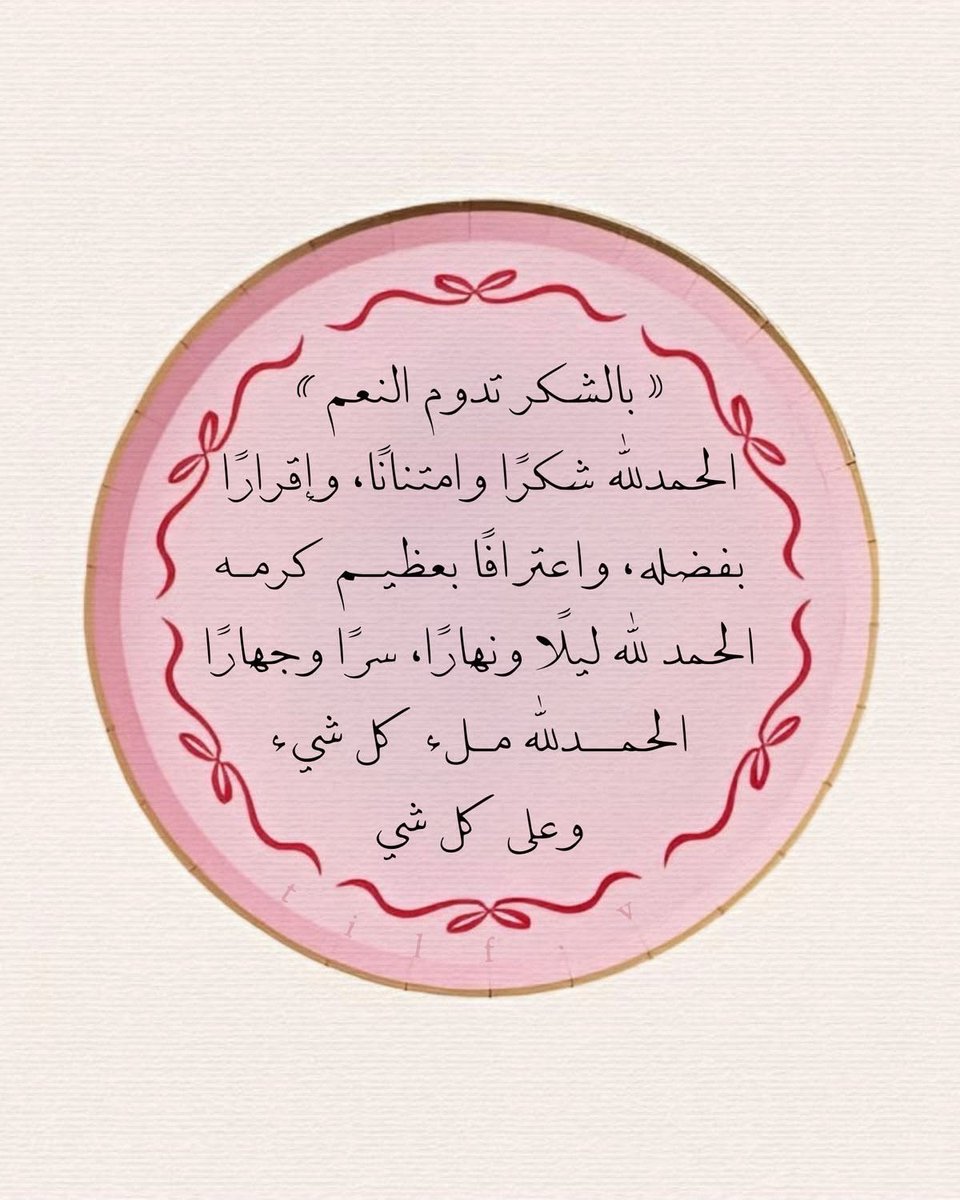 « بالشكر تدوم النعم »
الحمدلله شكرًا وامتنانًا، وإقرارًا
بفضله، واعترافًا بعظيم كرمه
الحمد لله ليلًا ونهارًا، سرًا وجهارًا
الحمدلله ملء كل شيء
وعلى كل شي
t i l f i v